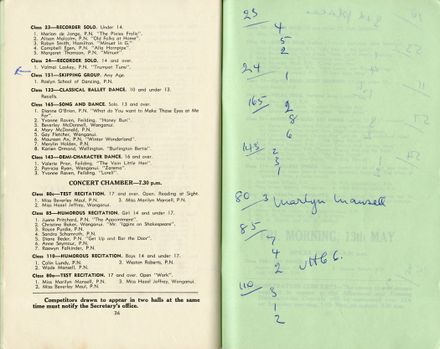 Class 23—RECORDER SOLO. Under 14.
1. Marion de Jonge, P.N. "The Pixies Frolic".
2. Alison Malcolm, P.N. "Old Folks at Home".
3. Robyn Smith, Hamilton. "Minuet in G."
4. Campbell Egen, P.N. "Alla Hornpipe".
5. Margaret Thomson, P.N. "Minuet".
Class 24—RECORDER SOLO. 14 and over.
1. Valmai Laskey, P.N. "Trumpet Tune".
Class 151—SKIPPING GROUP. Any Age.
1. Roslyn School of Dancing, P.N.
Class 133—CLASSICAL BALLET DANCE. 10 and under 13.
Recalls.
Class 165—SONG AND DANCE. Solo. 13 and over.
1. Dianne O'Brien, P.N. "What do you want to Make Those Eyes at Me
For".
2. Yvonne Raven, Feilding. "Honey Bun".
3. Beverley McDonnell, Wanganui.
4. Mary McDonald, P.N.
5. Gay Fletcher, Wanganui.
6. Maureen Ax, P.N. "Winter Wonderland".
7. Merolin Holden, P.N.
8. Karien Ormond, Wellington. "Burlington Bertie".
Class 143—DEMI-CHARACTER DANCE. 16 and over.
1. Valerie Prior, Feilding. "The Vain Little Hen".
2. Patricia Ryan, Wanganui. "Zorema".
3. Yvonne Raven, Feilding. "Loreli".
CONCERT CHAMBER—7.30 p.m.
Class 80c—TEST RECITATION. 17 and over. Open, Reading at Sight.
1. Miss Beverley Maul, P.N.
2. Miss Hazel Jeffrey, Wanganui.
3. Miss Marilyn Mansell, P.N.
Class 85—HUMOROUS RECITATION. Girl 14 and under 17.
1. Juene Pritchard, P.N. "The Appointment".
2. Christine Baker, Wanganui. "Mr. Iggins on Shakespeare".
3. Royce Purdie, P.N.
4. Sandra Schamroth, P.N.
5. Diane Beder, P.N. "Get Up and Bar the Door".
6. Anne Seymour, P.N.
7. Raewyn Falkinder, P.N.
Class 110—HUMOROUS RECITATION. Boys 14 and under 17.
1. Colin Lundy, P.N.
2. Wade Mansell, P.N.
3. Weston Roberts, P.N.
Class 80a—TEST RECITATION. 17 and over. Open "Work".
1. Miss Marilyn Mansell, P.N.
2. Miss Beverley Maul, P.N.
3. Miss Hazel Jeffrey, Wanganui.
Competitors drawn to appear in two halls at the same
time must notify the Secretary's office.
36
23
4
5
2
24 1
165 2
8
6
143 2
3
1
80 3 Marilyn Mansell
85
7
4
2
110 3
1
2
MORNING, 13th MAY